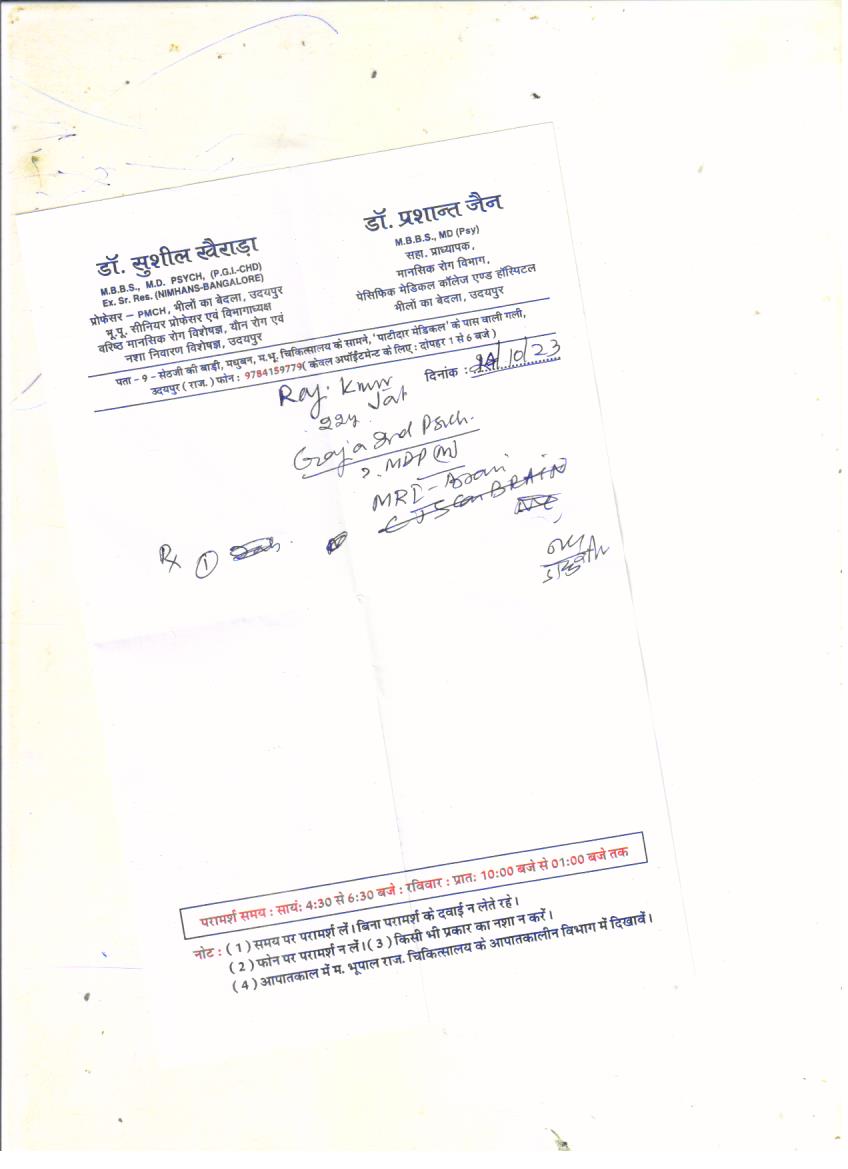 डॉ. सुशील खैराड़ा
M.B.B.S., M.D. PSYCH, (P.G.I.-CHD)
Ex. Sr. Res. (NIMHANS-BANGALORE)
प्रोफेसर – PMCH, भीलों का बेदला, उदयपुर
भू.पू. सीनियर प्रोफेसर एवं विभागाध्यक्ष
वरिष्ठ मानसिक रोग विशेषज्ञ, यौन रोग एवं
नशा निवारण विशेषज्ञ, उदयपुर
डॉ. प्रशान्त जैन
M.B.B.S., MD (Psy)
सहा. प्राध्यापक,
मानसिक रोग विभाग,
पेसिफिक मेडिकल कॉलेज एण्ड हॉस्पिटल
भीलों का बेदला, उदयपुर
पता – 9 – सेठजी की बाड़ी, मधुबन, म.भू. चिकित्सालय के सामने, 'पाटीदार मेडिकल' के पास वाली गली,
उदयपुर ( राज. ) फोन : 9784159779( केवल अपॉईंटमेन्ट के लिए : दोपहर 1 से 6 बजे )
दिनांक : /10/23
Raj. Kmr
Jat
22y
Psych.
?. MDP (M)
MRI – Brain
CT Scan BRAIN
Rx 1
परामर्श समय : सायं: 4:30 से 6:30 बजे : रविवार : प्रात: 10:00 बजे से 01:00 बजे तक
नोट : ( 1 ) समय पर परामर्श लें। बिना परामर्श के दवाई न लेते रहे।
( 2 ) फोन पर परामर्श न लें। ( 3 ) किसी भी प्रकार का नशा न करें।
( 4 ) आपातकाल में म. भूपाल राज. चिकित्सालय के आपातकालीन विभाग में दिखावें।